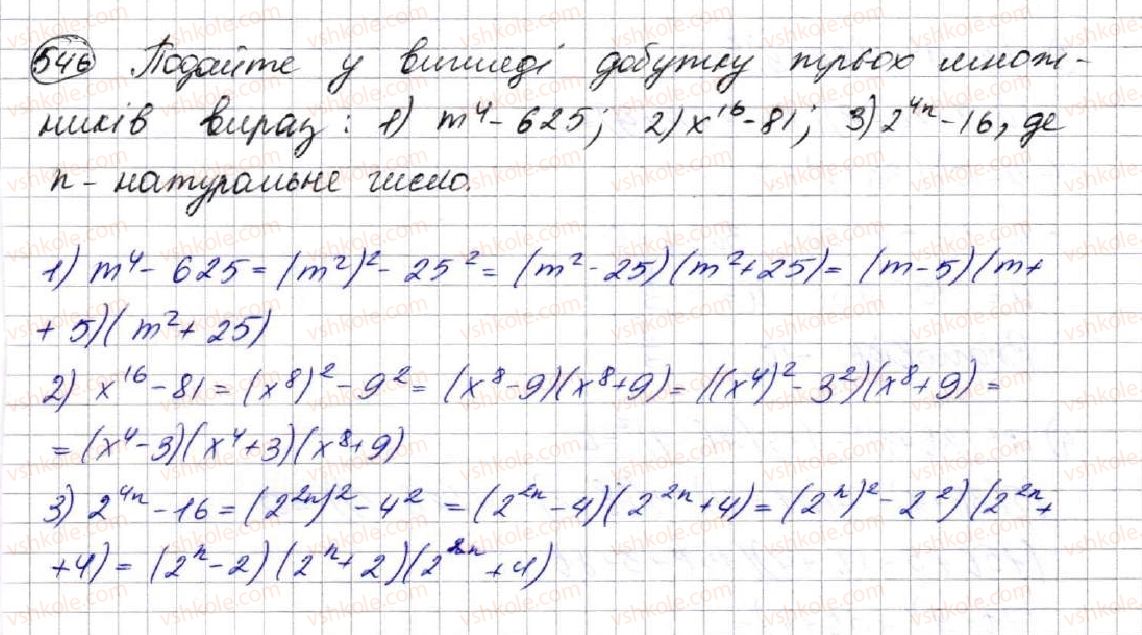 546 Подайте у вигляді добутку трьох множ-
ників вираз: 1) m⁴ - 625; 2) x¹⁶ - 81; 3) 2⁴ⁿ - 16, де
n - натуральне число.
1) m⁴ - 625 = (m²)² - 25² = (m² - 25)(m² + 25) = (m - 5)(m +
+ 5)(m² + 25)
2) x¹⁶ - 81 = (x⁸)² - 9² = (x⁸ - 9)(x⁸ + 9) = ((x⁴)² - 3²)(x⁸ + 9) =
= (x⁴ - 3)(x⁴ + 3)(x⁸ + 9)
3) 2⁴ⁿ - 16 = (2²ⁿ)² - 4² = (2²ⁿ - 4)(2²ⁿ + 4) = (2ⁿ)² - 2²)(2²ⁿ +
+ 4) = (2ⁿ - 2)(2ⁿ + 2)(2²ⁿ + 4)